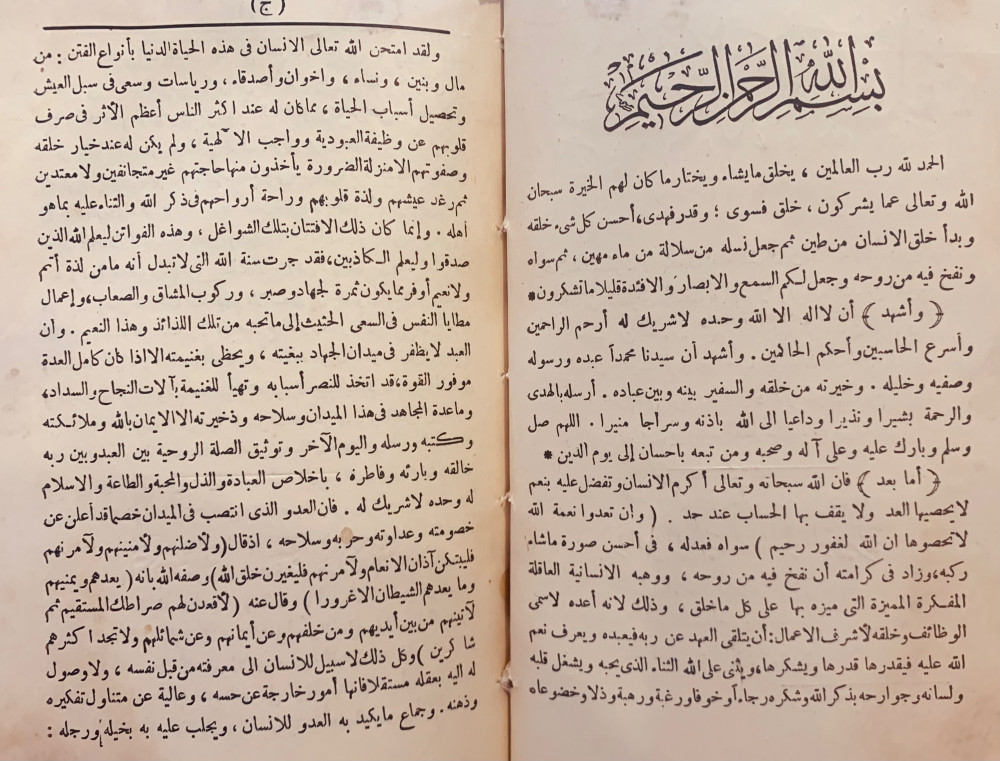 بسم الله الرحمن الرحيم
الحمد لله رب العالمين ، يخلق مايشاء ويختار ما كان لهم الخيرة سبحان
الله وتعالى عما يشركون ، خلق فسوى ؛ وقدر فهدى، أحسن كل شيء خلقه
وبدأ خلق الانسان من طين ثم جعل نسله من سلالة من ماء مهين ، ثم سواه
ونفخ فيه من روحه وجعل لكم السمع والابصار والافئدة قليلا ما تشكرون *
﴿ وأشهد ﴾ أن لا اله الا الله وحده لاشريك له أرحم الراحمين
وأسرع الحاسبين وأحكم الحاكمين . وأشهد أن سيدنا محمداً عبده ورسوله
وصفيه وخليله . وخيرته من خلقه والسفير بينه وبين عباده . أرسله بالهدى
والرحمة بشيرا ونذيرا وداعيا الى الله باذنه وسراجا منيرا . اللهم صل
وسلم وبارك عليه وعلى آله وصحبه ومن تبعه باحسان إلى يوم الدين *
﴿ أما بعد ﴾ فان الله سبحانه وتعالى أكرم الانسان وتفضل عليه بنعم
لايحصيها العد ولا يقف بها الحساب عند حد . ( وان تعدوا نعمة الله
لاتحصوها ان الله لغفور رحيم ) سواه فعدله ، فى أحسن صورة ماشاء
ركبه، وزاد فى كرامته أن نفخ فيه من روحه ، ووهبه الانسانية العاقلة
المفكرة المميزة التى ميزه بها على كل ماخلق ، وذلك لانه أعده لاسمى
الوظائف وخلقه لأشرف الاعمال: أن يتلقى العهد عن ربه فيعبده ويعرف نعم
الله عليه فيقدرها قدرها ويشكرها، ويثنى على الله الثناء الذى يحبه ويشغل قلبه
ولسانه وجوارحه بذكر الله وشكره رجاء أو خوفا ورغبة ورهبة وذلا وخضوعاه
(ج)
ولقد امتحن الله تعالى الانسان فى هذه الحياة الدنيا بأنواع الفتن : من
مال وبنين ، ونساء ، واخوان وأصدقاء ، ورياسات وسعى فى سبل العيش
وتحصيل أسباب الحياة ، مما كان له عند اكثر الناس أعظم الأثر فى صرف
قلوبهم عن وظيفة العبودية وواجب الآلهية ، ولم يكن له عند خيار خلقه
وصفوتهم الا منزلة الضرورة يأخذون منها حاجتهم غير متجانفين ولا معتدين
ثم رغد عيشهم ولذة قلوبهم وراحة أرواحهم فى ذكر الله والثناء عليه بما هو
أهله . وإنما كان ذلك الافتتان بتلك الشواغل ، وهذه الفواتن ليعلم الله الذين
صدقوا وليعلم الكاذبين، فقد جرت سنة الله التى لاتبدل أنه ما من لذة أتم
ولا نعيم أوفر مما يكون ثمرة لجهاد وصبر ، وركوب المشاق والصعاب، وإعمال
مطايا النفس فى السعى الحثيث إلى ماتحبه من تلك اللذائذ وهذا النعيم . وأن
العبد لايظفر فى ميدان الجهاد ببغيته ، ويحظى بغنيمته الا اذا كان كامل العدة
موفور القوة، قد اتخذ للنصر أسبابه وتهيأ للغنيمة بآلات النجاح والسداد،
وما عدة المجاهد فى هذا الميدان وسلاحه وذخيرته الا الايمان بالله وملائكته
وكتبه ورسله واليوم الآخر وتوثيق الصلة الروحية بين العبد وبين ربه
خالقه وبارئه وفاطره ، باخلاص العبادة والذل والمحبة والطاعة والاسلام
له وحده لاشريك له . فان العدو الذى انتصب فى الميدان خصما قد أعلن عن
خصومته وعداوته وحربه وسلاحه ، اذ قال (ولأضلنهم ولأمنينهم ولآمرنهم
فليبتكن آذان الانعام ولآمرنهم فليغيرن خلق الله) وصفه الله بانه ( يعدهم ويمنيهم
وما يعدهم الشيطان الا غرورا ) وقال عنه (لأقعدن لهم صراطك المستقيم ثم
لآتينهم من بين أيديهم ومن خلفهم وعن أيمانهم وعن شمائلهم ولا تجد اكثرهم
شاكرين ) وكل ذلك لاسبيل للانسان الى معرفته من قبل نفسه ، ولا وصول
له اليه بعقله مستقلا فانها أمور خارجة عن حسه ، وعالية عن متناول تفكيره
وذهنه . وجماع مايكيد به العدو للانسان ، ويجلب عليه به بخيله ورجله :